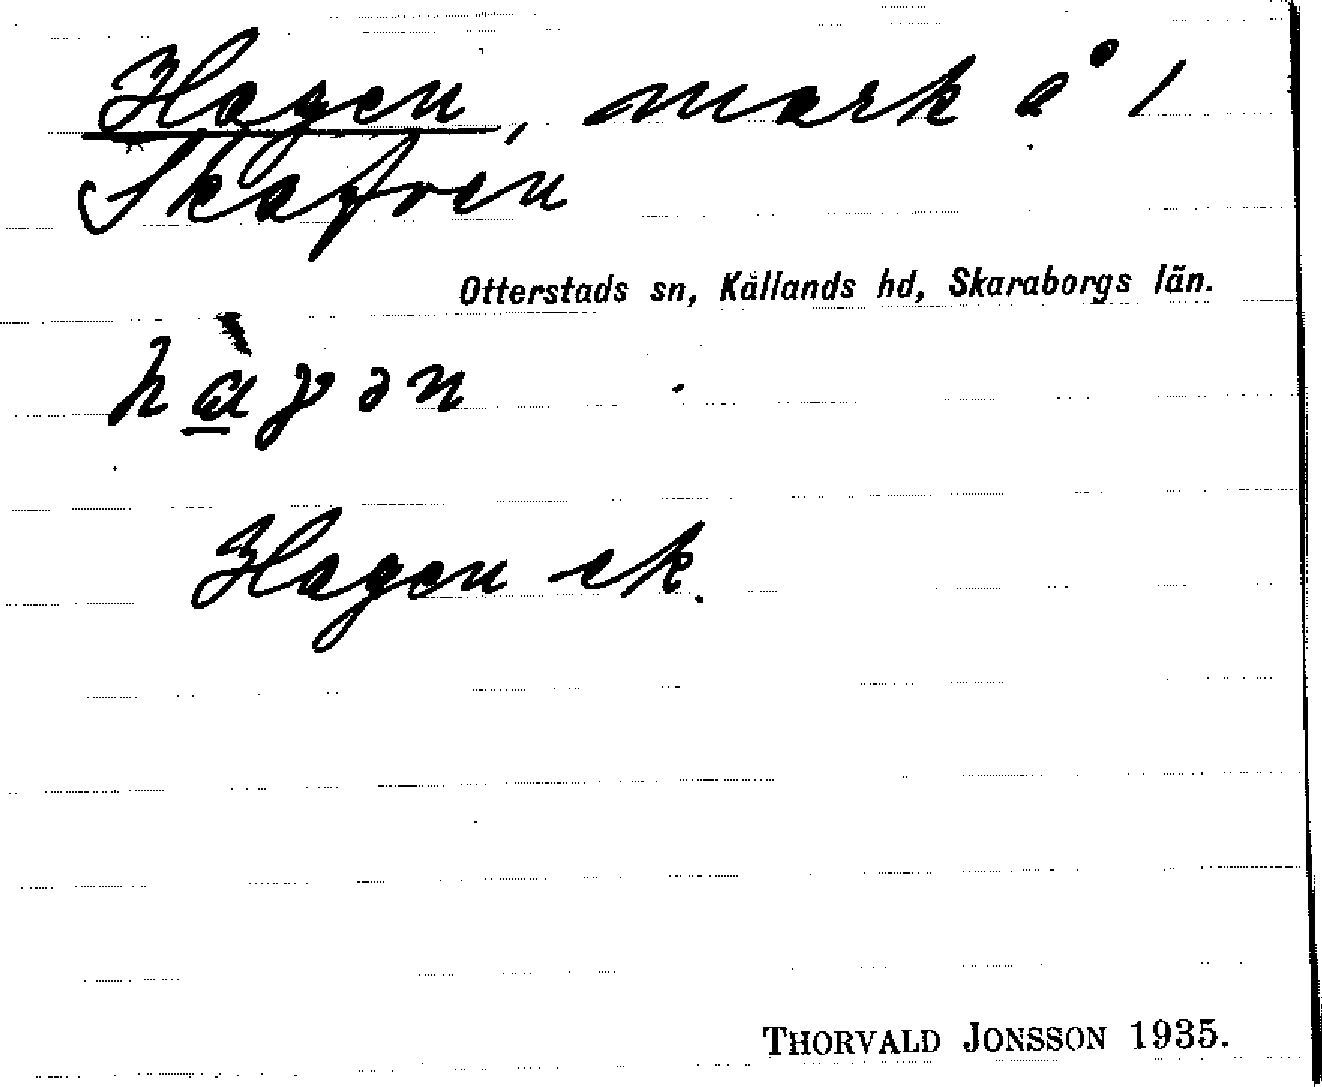 Hagen, mark å 1
Skafven
Otterstads sn, Kållands hd, Skaraborgs län.
hàgən
Hagen ek.
THORVALD JONSSON 1935.